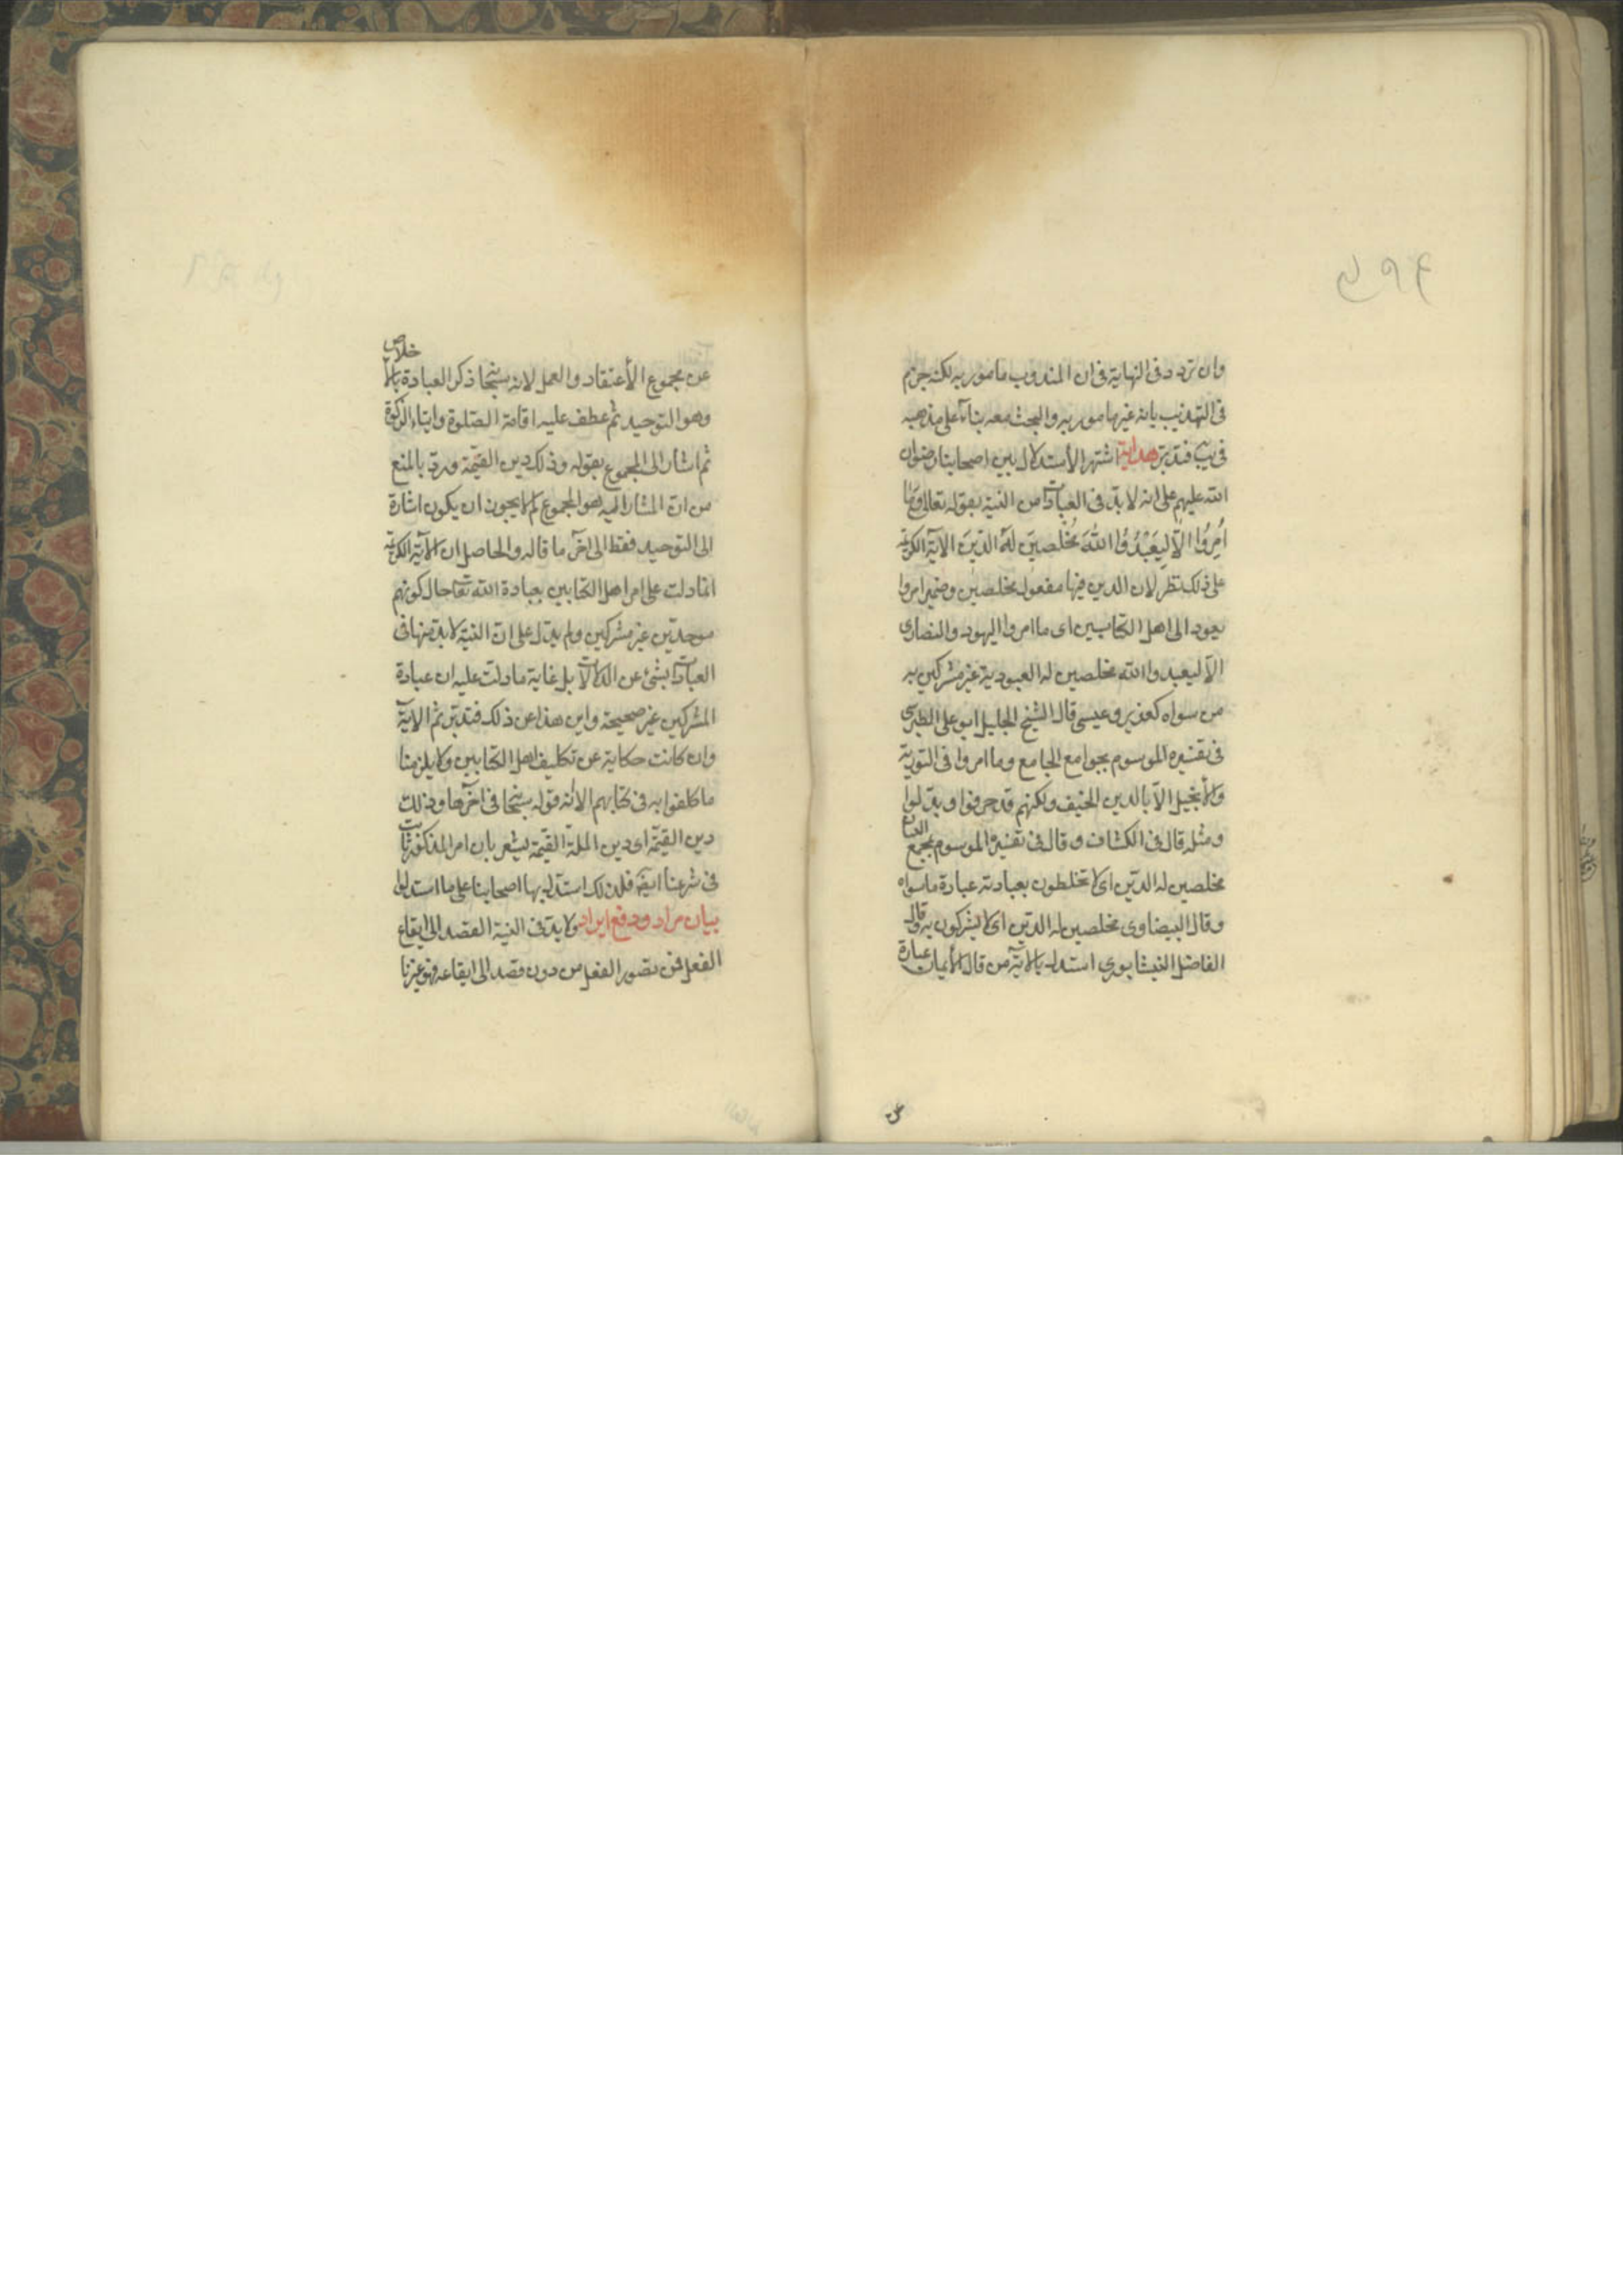 وان تردد فى النهاية فى ان المندوب مامور به لكنه جزم
فى التهذيب بانه غير مامور به والبحث معه بناء على مذهبه
فى يب فتدبر هداية اشتهر الأستدلال بين اصحابنا رضوان
الله عليهم على انه لا بد فى العبادات من النية بقوله تعالى وَمَا
اُمِرُوا اِلّا لِيَعْبُدُوا اللّهَ مُخْلِصِينَ لَهُ الدّينَ الاية الكريمة
على ذلك نظر لان الدين فيها مفعول مخلصين وضمير امروا
يعود الى اهل الكتابين اى ما امروا اليهود والنصارى
الّا ليعبدوا الله مخلصين له العبودية غير مشركين به
من سواه كعزير وعيسى قال الشيخ الجليل ابو على الطبرسى
فى تفسيره الموسوم بجوامع الجامع وما امروا فى التورية
والأنجيل الّا بالدين الحنيف ولكنهم قد حرفوا وبدّلوا
ومثله قال فى الكشاف وقال فى تفسيره الموسوم بمجمع البيان
مخلصين له الدّين اى لا تخلطون بعبادته عبادة ما سواه
وقال البيضاوى مخلصين له الدّين اى لا يشركون به وقال
الفاضل النيشابورى استدل بالاية من قال الأيمان عبارة
عن
عن مجموع الأعتقاد والعمل لانه سبحانه ذكر العبادة بالاخلاص
وهو التوحيد ثم عطف عليه اقامة الصّلوة وايتاء الزكوة
ثم اشار الى المجموع بقوله وذلك دين القيّمة وردّ بالمنع
من انّ المشار اليه هو المجموع لم لا يجوز ان يكون اشارة
الى التوحيد فقط الى اخر ما قاله والحاصل ان الآية الكريمة
انما دلت على امر اهل الكتابين بعبادة الله تعا حال كونهم
موحدّين غير مشركين ولم يدل على انّ النية لا بد منها فى
العبادات بشئ عن الدلالات بل غاية ما دلت عليه ان عبادة
المشركين غير صحيحة واين هذا عن ذلك فتدبّر ثم الآية
وان كانت حكاية عن تكليف اهل الكتابين ولا يلزمنا
ما كلفوا به فى كتابهم الا انه قوله سبحانه فى آخرها وذلك
دين القيّمة اى دين الملة القيّمة يشعر بان امر المذكور ثابت
فى شرعنا ايضا فلذلك استدل بها اصحابنا على ما استدلوا
بيان مراد ودفع ايراد ولا بد فى النية القصد الى ايقاع
الفعل فمن تصور الفعل من دون قصد الى ايقاعه فهو غير نا